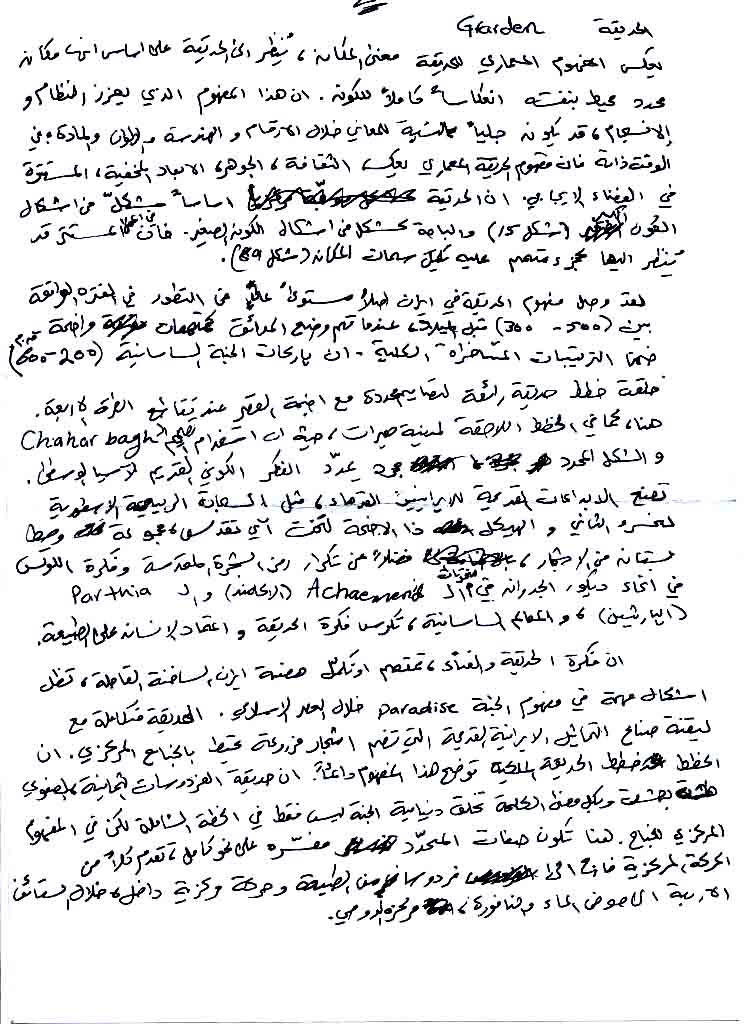 الحديقة Garden
يعكس المفهوم المعماري للحديقة معنى المكان، يُنظر الى الحديقة على اساس انها مكان
محدد يحيط بنفسه انعكاساً كاملاً للكون. ان هذا المفهوم الذي يعزز النظام و
الانسجام، قد يكون جلياً بالنسبة للمعاني خلال الارقام و الهندسة والالوان والمادة؛ في
الوقت ذاته فان مفهوم الحديقة المعماري يعكس الثقافة، الجوهر، الابعاد المخفية، المستترة
في الفضاء الايجابي. ان الحديقة اساساً من اشكال
الكون (شكل 15) والباحة كشكل من اشكال الكون الصغير. قد
يُنظر اليها كجزء متمم عليه تكمل سمات المكان (شكل 15).
لقد وصل مفهوم الحديقة في ايران اصلاً مستوىً عالٍ من التطور في الفترة الواقعة
بين (500 - 300) قبل الميلاد، عندما تم وضع الحدائق واضحة
ضمن الترتيبات المتناظرة الكلية. ان باحات الجنة الساسانية (200-600)
خلقت خطط حديقة رائعة لتصاميم محددة مع اضحة القصر عند تقاطع الطرق الاربعة.
هنا، كما في الخطط اللاحقة لمدينة هيرات، حيث ان استخدام Chahar bagh
والشكل المحدد يمدّد الفكر الكوني القديم لآسيا الوسطى.
تصنع الابداعات القديمة للايرانيين القدماء، مثل السجادة الربيعية الاسطورية
لخسرو الثاني و الهيكل ذا الاضحة
بستان من الاشجار، فضلاً عن تكرار رمز الشجرة المقدسة وفكرة اللوتس
في انحاء ديكور الجدران في الـ Achaemenid (الاخمند) و الـ Parthia
(البارثين)، و المعالم الساسانية، تكرس فكرة الحديقة و اعتماد الانسان على الطبيعة.
ان فكرة الحديقة والفناء، تتمم او تكمل هضبة ايران الساخنة القاحلة، تظل
اشكال مهمة في مفهوم الجنة Paradise خلال العصر الاسلامي. الحديقة متكاملة مع
التماثيل الايرانية القديمة التي تضم اشجار مزروعة تحيط بالجناح المركزي. ان
الخطط الحديقة توضح هذا المفهوم دائماً. ان حديقة الفردوسات الثمانية الصفوي
بهشت وبكل معنى الكلمة تخلق دنيامية الجنة ليس فقط في الخطة الشاملة لكن في المفهوم
المركزي للجناح. هنا تكون صفات المتحدّد مفسّره على نحو كامل، تقدم كلاً من
الحركة المركزية خارج الى فردوسا من الطبيعة وحركة مركزية داخل، خلال السقائف
الاربعة الى حوض الماء والنافورة،